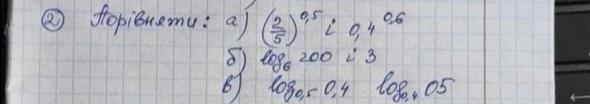 ② Порівняти: а) (2/5)^0,5 і 0,4^0,6
б) log₆ 200 і 3
в) log₀,₅ 0,4 log₀,₄ 05